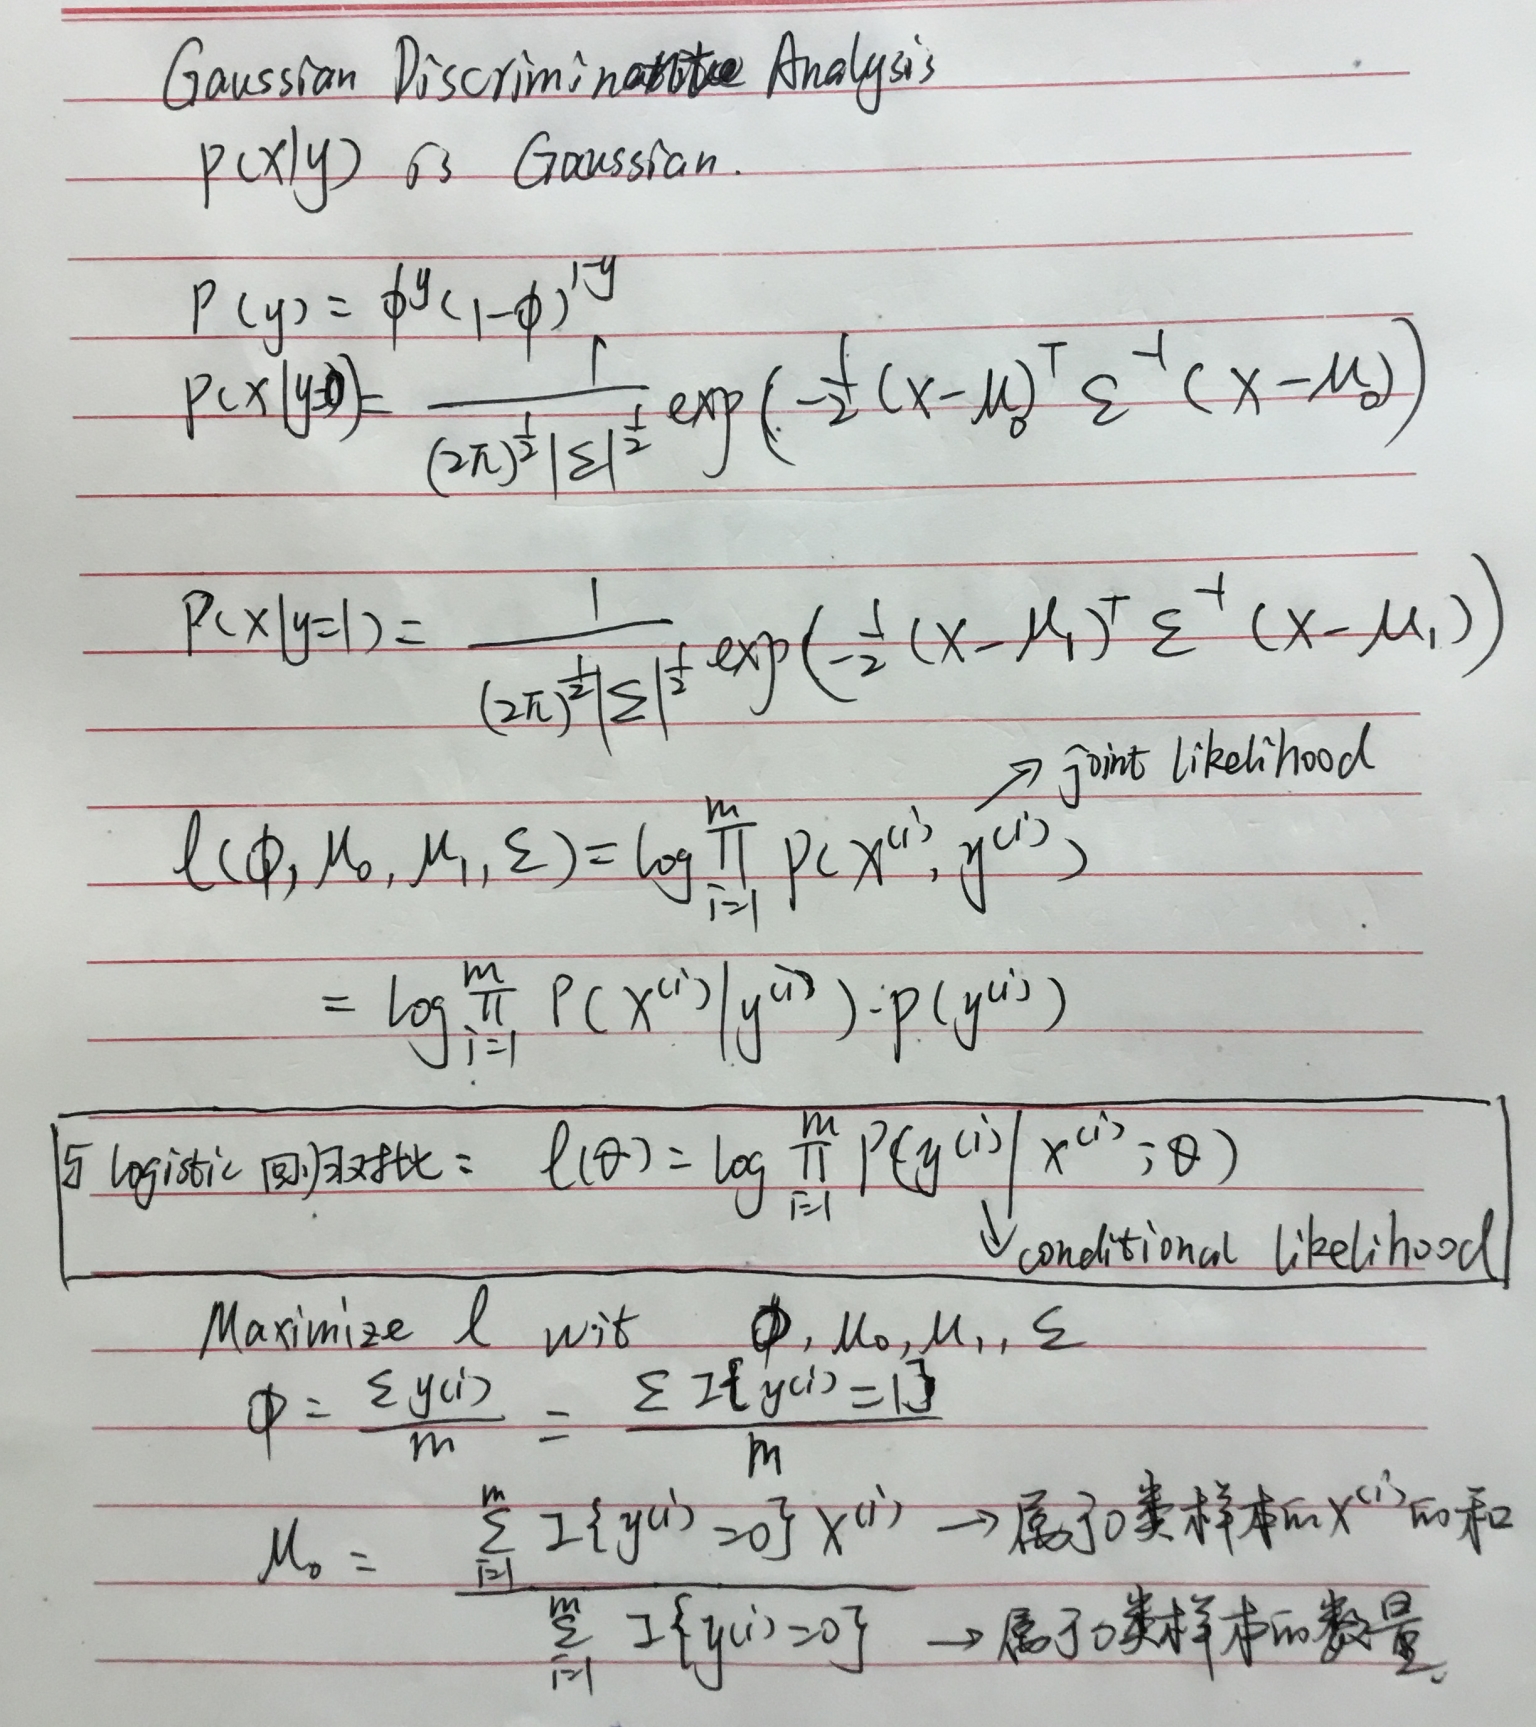 Gaussian Discriminative Analysis
P(x|y) is Gaussian.
P(y) = ϕ^y (1-ϕ)^{1-y}
P(x|y=0) = \frac{1}{(2π)^{\frac{1}{2}}|Σ|^{\frac{1}{2}}} exp(-\frac{1}{2}(x-μ_0)^T Σ^{-1} (x-μ_0))
P(x|y=1) = \frac{1}{(2π)^{\frac{1}{2}}|Σ|^{\frac{1}{2}}} exp(-\frac{1}{2}(x-μ_1)^T Σ^{-1} (x-μ_1))
→ joint likelihood
l(ϕ, μ_0, μ_1, Σ) = log ∏_{i=1}^{m} P(x^{(i)}, y^{(i)})
= log ∏_{i=1}^{m} P(x^{(i)}|y^{(i)})·p(y^{(i)})
与 logistic 回归对比: l(θ) = log ∏_{i=1}^{m} P(y^{(i)}|x^{(i)};θ)
↓ conditional likelihood
Maximize l wit ϕ, μ_0, μ_1, Σ
ϕ = \frac{Σ y^{(i)}}{m} = \frac{Σ I{y^{(i)}=1}}{m}
μ_0 = \frac{Σ_{i=1}^{m} I{y^{(i)}=0} x^{(i)}}{Σ_{i=1}^{m} I{y^{(i)}=0}}
→ 属于0类样本的x^{(i)}的和
→ 属于0类样本的数量.